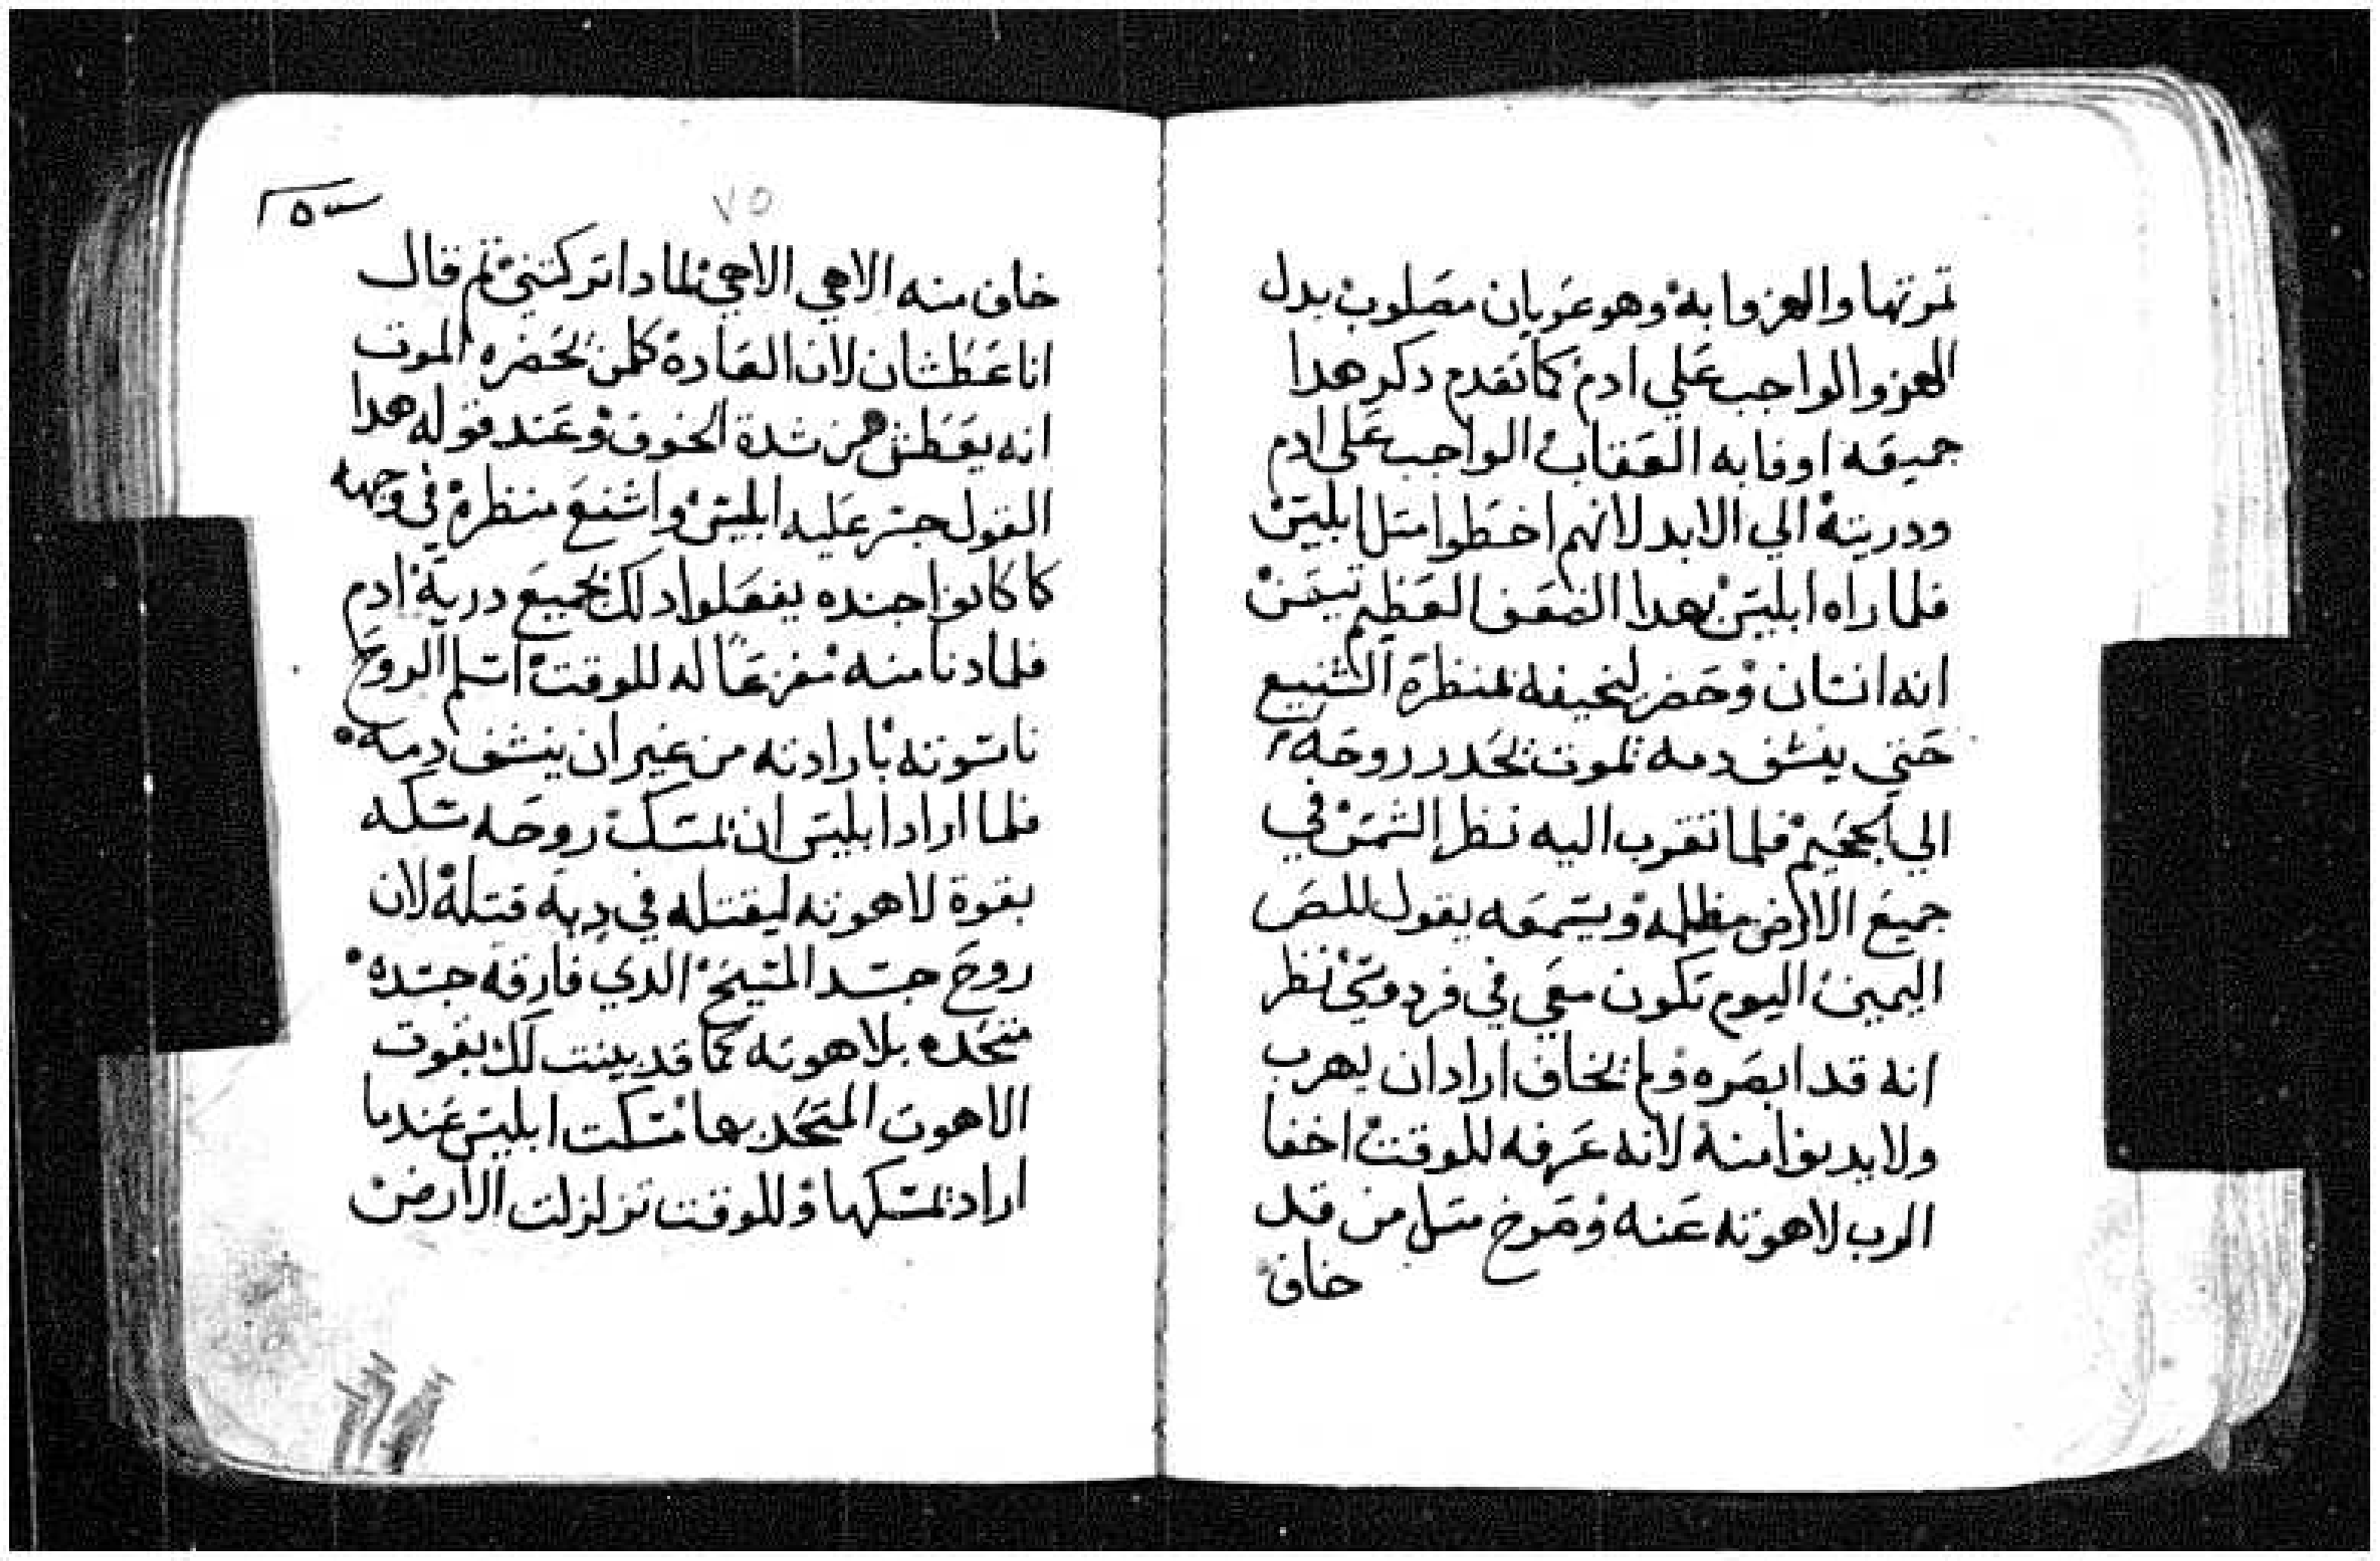 تمرتها والعزوا به وهو عريان مصلوب بدل
العزو الواجب علي ادم كما تقدم دكر هدا
جميعه اوفا به العقاب الواجب علي ادم
ودريته الي الابد لانهم اخطوا متل ابليس
فلما راه ابليس بهدا الضعف العظيم تيقن
انه انسان وحضر ليخيفه بمنظره الشنيع
حتي ينشف دمه يموت يحدر روحه
الي الجحيم فلما تقرب اليه نظر الشمس في
جميع الارض مظلمه ويسمعه يقول للص
اليمين اليوم تكون معي في فردوسي نظر
انه قد ابصره ولم يخاف اراد ان يهرب
ولا يدنوا منه لانه عرفه للوقت اخفا
الرب لاهوته عنه وصرخ متل من قد
خاف
٧٥
خاف منه الاهي الاهي لمادا تركتني تم قال
انا عطشان لان العادة كلمن يحضره الموت
انه يعطش من شدة الخوف وعند قوله هدا
القول جسر عليه ابليس واشنع منظره في وجهه
كما كانوا جنده يفعلوا دلك بجميع درية ادم
فلما دنا منه مفزعا له للوقت اسلم الروح
ناسوته بارادته من غير ان ينشف دمه
فلما اراد ابليس ان يمسك روحه مسكه
بقوة لاهوته ليقتله في دية قتله لان
روح جسد المسيح الدي فارقه جسده
متحده بلاهوته كما قد بينت لك بقوت
الاهوت المتحد بها مسكت ابليس عندما
اراد يمسكها وللوقت تزلزلت الارض